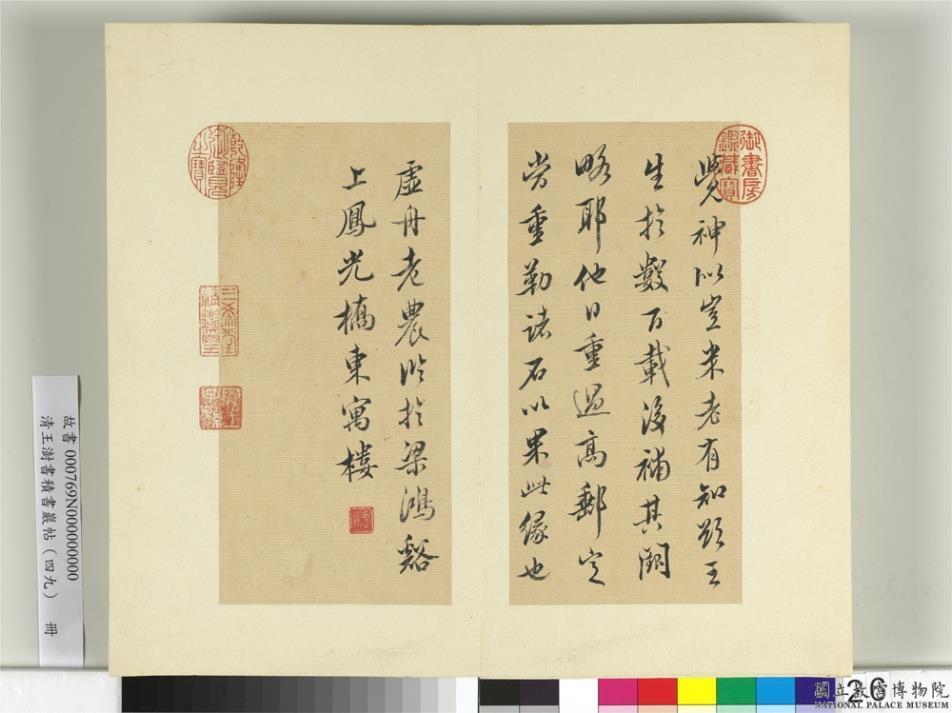 覺神似豈米老有知欲王
生於數百載後補其闕
略耶他日重過高郵定
當重勒諸石以果此緣也
虛舟老農臨於梁鴻谿
上鳳光橋東寓樓
御書房
鑑藏寶
乾隆
御覽
之寶
故書 000769N000000000
清王澍書積書巖帖(四九) 冊
26
國立故宮博物院
NATIONAL PALACE MUSEUM